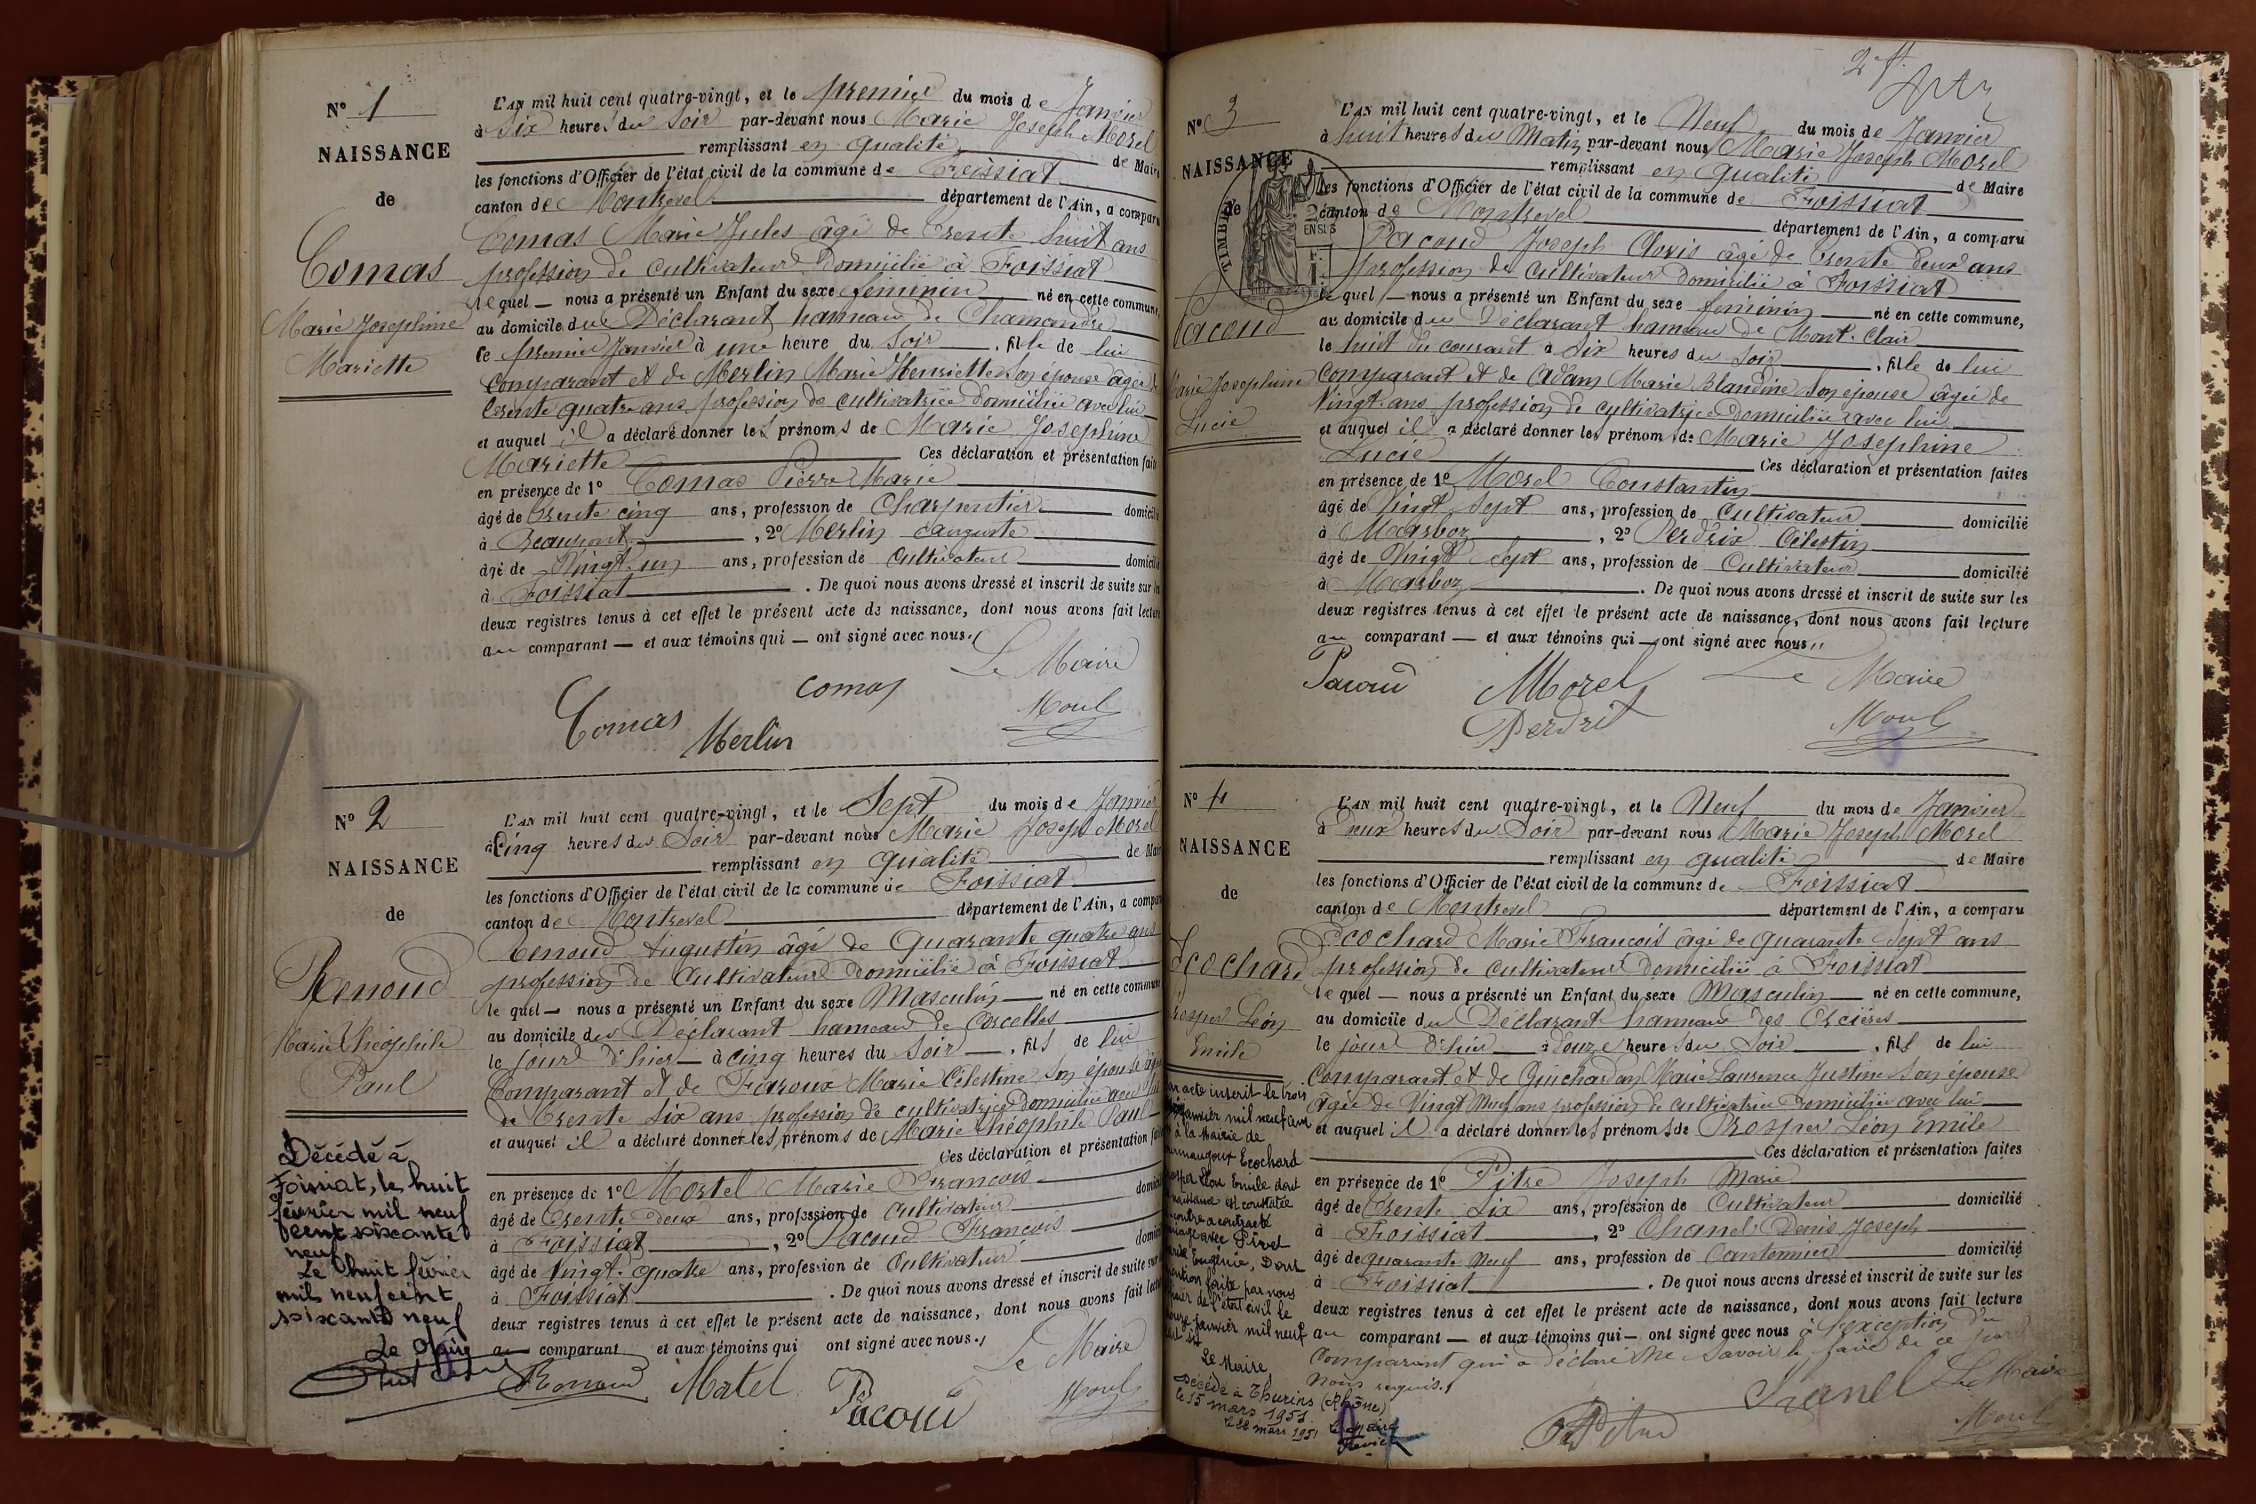 N° 1
NAISSANCE
de
Comas
Marie Josephine
Mariette
L'AN mil huit cent quatre-vingt, et le premier du mois de Janvier
à Six heures du Soir par-devant nous Marie Joseph Morel
remplissant en qualité de Maire
les fonctions d'Officier de l'état civil de la commune de Foissiat
canton de Montrevel département de l'Ain, a comparu
Comas Marie Jules âgé de Trente huit ans
profession de Cultivateur domicilié à Foissiat
lequel — nous a présenté un Enfant du sexe féminin né en cette commune,
au domicile du Déclarant hameau de Chamandré
le premier Janvier à une heure du Soir, fille de lui
Comparant et de Merlin Marie Henriette son épouse âgée de
trente quatre ans profession de cultivatrice domiciliée avec lui
et auquel il a déclaré donner les prénoms de Marie Josephine
Mariette Ces déclaration et présentation faites
en présence de 1° Comas Pierre Marie
âgé de trente cinq ans, profession de Charpentier domicilié
à Beaupont, 2° Merlin Auguste
âgé de Vingt-un ans, profession de Cultivateur domicilié
à Foissiat. De quoi nous avons dressé et inscrit de suite sur les
deux registres tenus à cet effet le présent acte de naissance, dont nous avons fait lecture
au comparant — et aux témoins qui — ont signé avec nous.
Le Maire
Comas
Comas
Morel
Merlin
N° 2
NAISSANCE
de
Renoud
Marie Théophile
Paul
Décédé à
Foissiat, le huit
février mil neuf
cent soixante
neuf
Le huit février
mil neuf cent
soixante neuf
Le Maire
L'AN mil huit cent quatre-vingt, et le Sept du mois de Janvier
à Cinq heures du Soir par-devant nous Marie Joseph Morel
remplissant en qualité de Maire
les fonctions d'Officier de l'état civil de la commune de Foissiat
canton de Montrevel département de l'Ain, a comparu
Renoud Augustin âgé de Quarante quatre ans
profession de Cultivateur domicilié à Foissiat
lequel — nous a présenté un Enfant du sexe Masculin né en cette commune
au domicile du Déclarant hameau de Corcelles
le jour d'hier à cinq heures du Soir, fils de lui
Comparant et de Feroux Marie Célestine son épouse âgée
de Trente Six ans profession de cultivatrice domiciliée avec lui
et auquel il a déclaré donner les prénoms de Marie Théophile Paul
Ces déclaration et présentation faites
en présence de 1° Mortel Marie François
âgé de Trente Deux ans, profession de Cultivateur domicilié
à Foissiat, 2° Pacoud François
âgé de Vingt-quatre ans, profession de Cultivateur domicilié
à Foissiat. De quoi nous avons dressé et inscrit de suite sur
deux registres tenus à cet effet le présent acte de naissance, dont nous avons fait lecture
au comparant et aux témoins qui ont signé avec nous.
Le Maire
Renoud Matel Pacoud Morel
2
N° 3
NAISSANCE
de
TIMBRE
Pacoud
Marie Josephine
Lucie
L'AN mil huit cent quatre-vingt, et le Neuf du mois de Janvier
à huit heures du Matin par-devant nous Marie Joseph Morel
remplissant en qualité de Maire
les fonctions d'Officier de l'état civil de la commune de Foissiat
canton de Montrevel département de l'Ain, a comparu
Pacoud Joseph Clovis âgé de Trente Deux ans
profession de Cultivateur domicilié à Foissiat
lequel — nous a présenté un Enfant du sexe féminin né en cette commune,
au domicile du Déclarant hameau de Mont-Clair
le huit du courant à Six heures du Soir, fille de lui
Comparant et de Adam Marie Blandine son épouse âgée de
Vingt ans profession de cultivatrice domiciliée avec lui
et auquel il a déclaré donner les prénoms de Marie Josephine
Lucie Ces déclaration et présentation faites
en présence de 1° Morel Constantin
âgé de Vingt Sept ans, profession de Cultivateur domicilié
à Marboz, 2° Perdrix Célestin
âgé de Vingt Sept ans, profession de Cultivateur domicilié
à Marboz. De quoi nous avons dressé et inscrit de suite sur les
deux registres tenus à cet effet le présent acte de naissance, dont nous avons fait lecture
au comparant — et aux témoins qui — ont signé avec nous
Pacoud Morel Le Maire
Perdrix Morel
N° 4
NAISSANCE
de
Ecochard
Prosper Léon
Emile
acte inscrit le trois
janvier mil neuf cent
à la Mairie de
Ecochard
Prosper Léon Emile dont
naissance est constatée
contre a contracté
mariage avec Pivet
Marie Eugénie, Dont
mention faite par nous
officier de l'état civil le
janvier mil neuf
Le Maire,
Décédé à Thurins (Rhône)
le 15 mars 1951
le 22 mars 1951 Le Maire
L'AN mil huit cent quatre-vingt, et le Neuf du mois de Janvier
à Deux heures du Soir par-devant nous Marie Joseph Morel
remplissant en qualité de Maire
les fonctions d'Officier de l'état civil de la commune de Foissiat
canton de Montrevel département de l'Ain, a comparu
Ecochard Marie François âgé de quarante Sept ans
profession de cultivateur domicilié à Foissiat
lequel — nous a présenté un Enfant du sexe Masculin né en cette commune,
au domicile du Déclarant hameau des Orcières
le jour d'hier à douze heures du Soir, fils de lui
Comparant et de Guichardan Marie Laurence Justine son épouse
âgée de Vingt Neuf ans profession de cultivatrice domiciliée avec lui
et auquel il a déclaré donner les prénoms de Prosper Léon Emile
Ces déclaration et présentation faites
en présence de 1° Pitre Joseph Marie
âgé de Trente Six ans, profession de Cultivateur domicilié
à Foissiat, 2° Chanel Denis Joseph
âgé de quarante Neuf ans, profession de Cantonnier domicilié
à Foissiat. De quoi nous avons dressé et inscrit de suite sur les
deux registres tenus à cet effet le présent acte de naissance, dont nous avons fait lecture
au comparant — et aux témoins qui — ont signé avec nous à l'exception du
Comparant qui a déclaré ne savoir le faire de ce
nous requis.
Chanel Le Maire
Pitre Morel